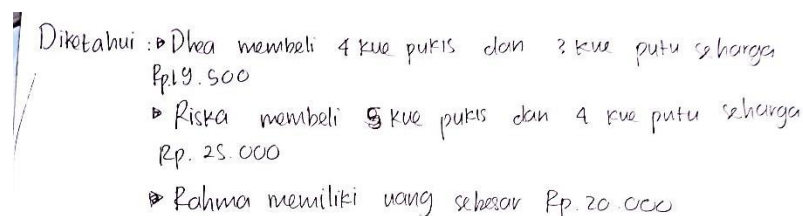 Diketahui : Dhea membeli 4 kue pukis dan 3 kue putu seharga
Rp.19.500
Riska membeli 5 kue pukis dan 4 kue putu seharga
Rp. 25.000
Rahma memiliki uang sebesar Rp. 20.000